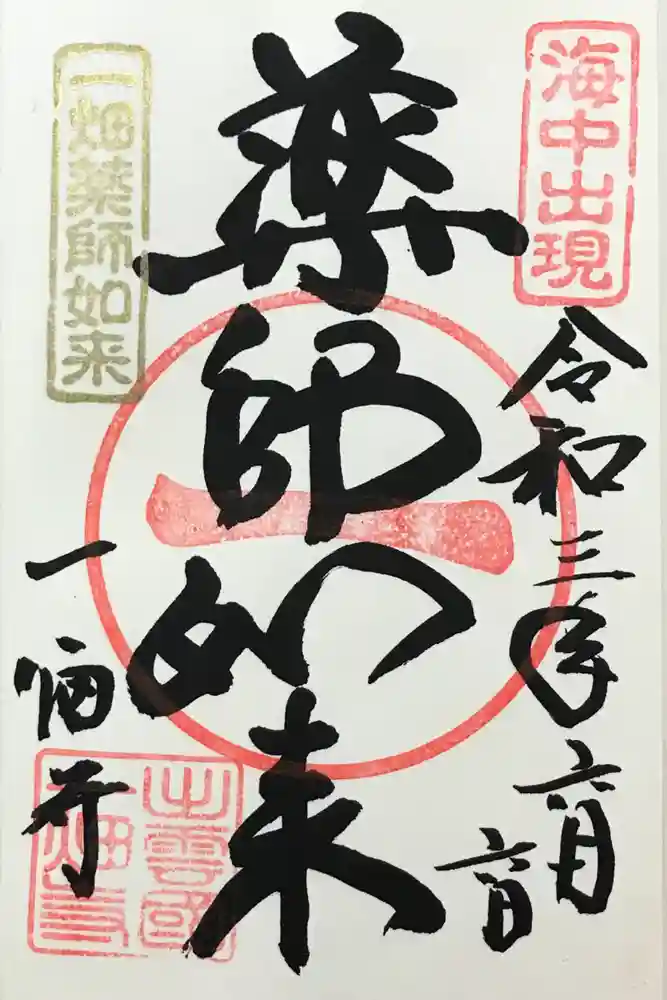 海中出現
令和三年六月六日
薬師如来
一畑薬師如来
一畑寺
一
出雲國
一畑寺